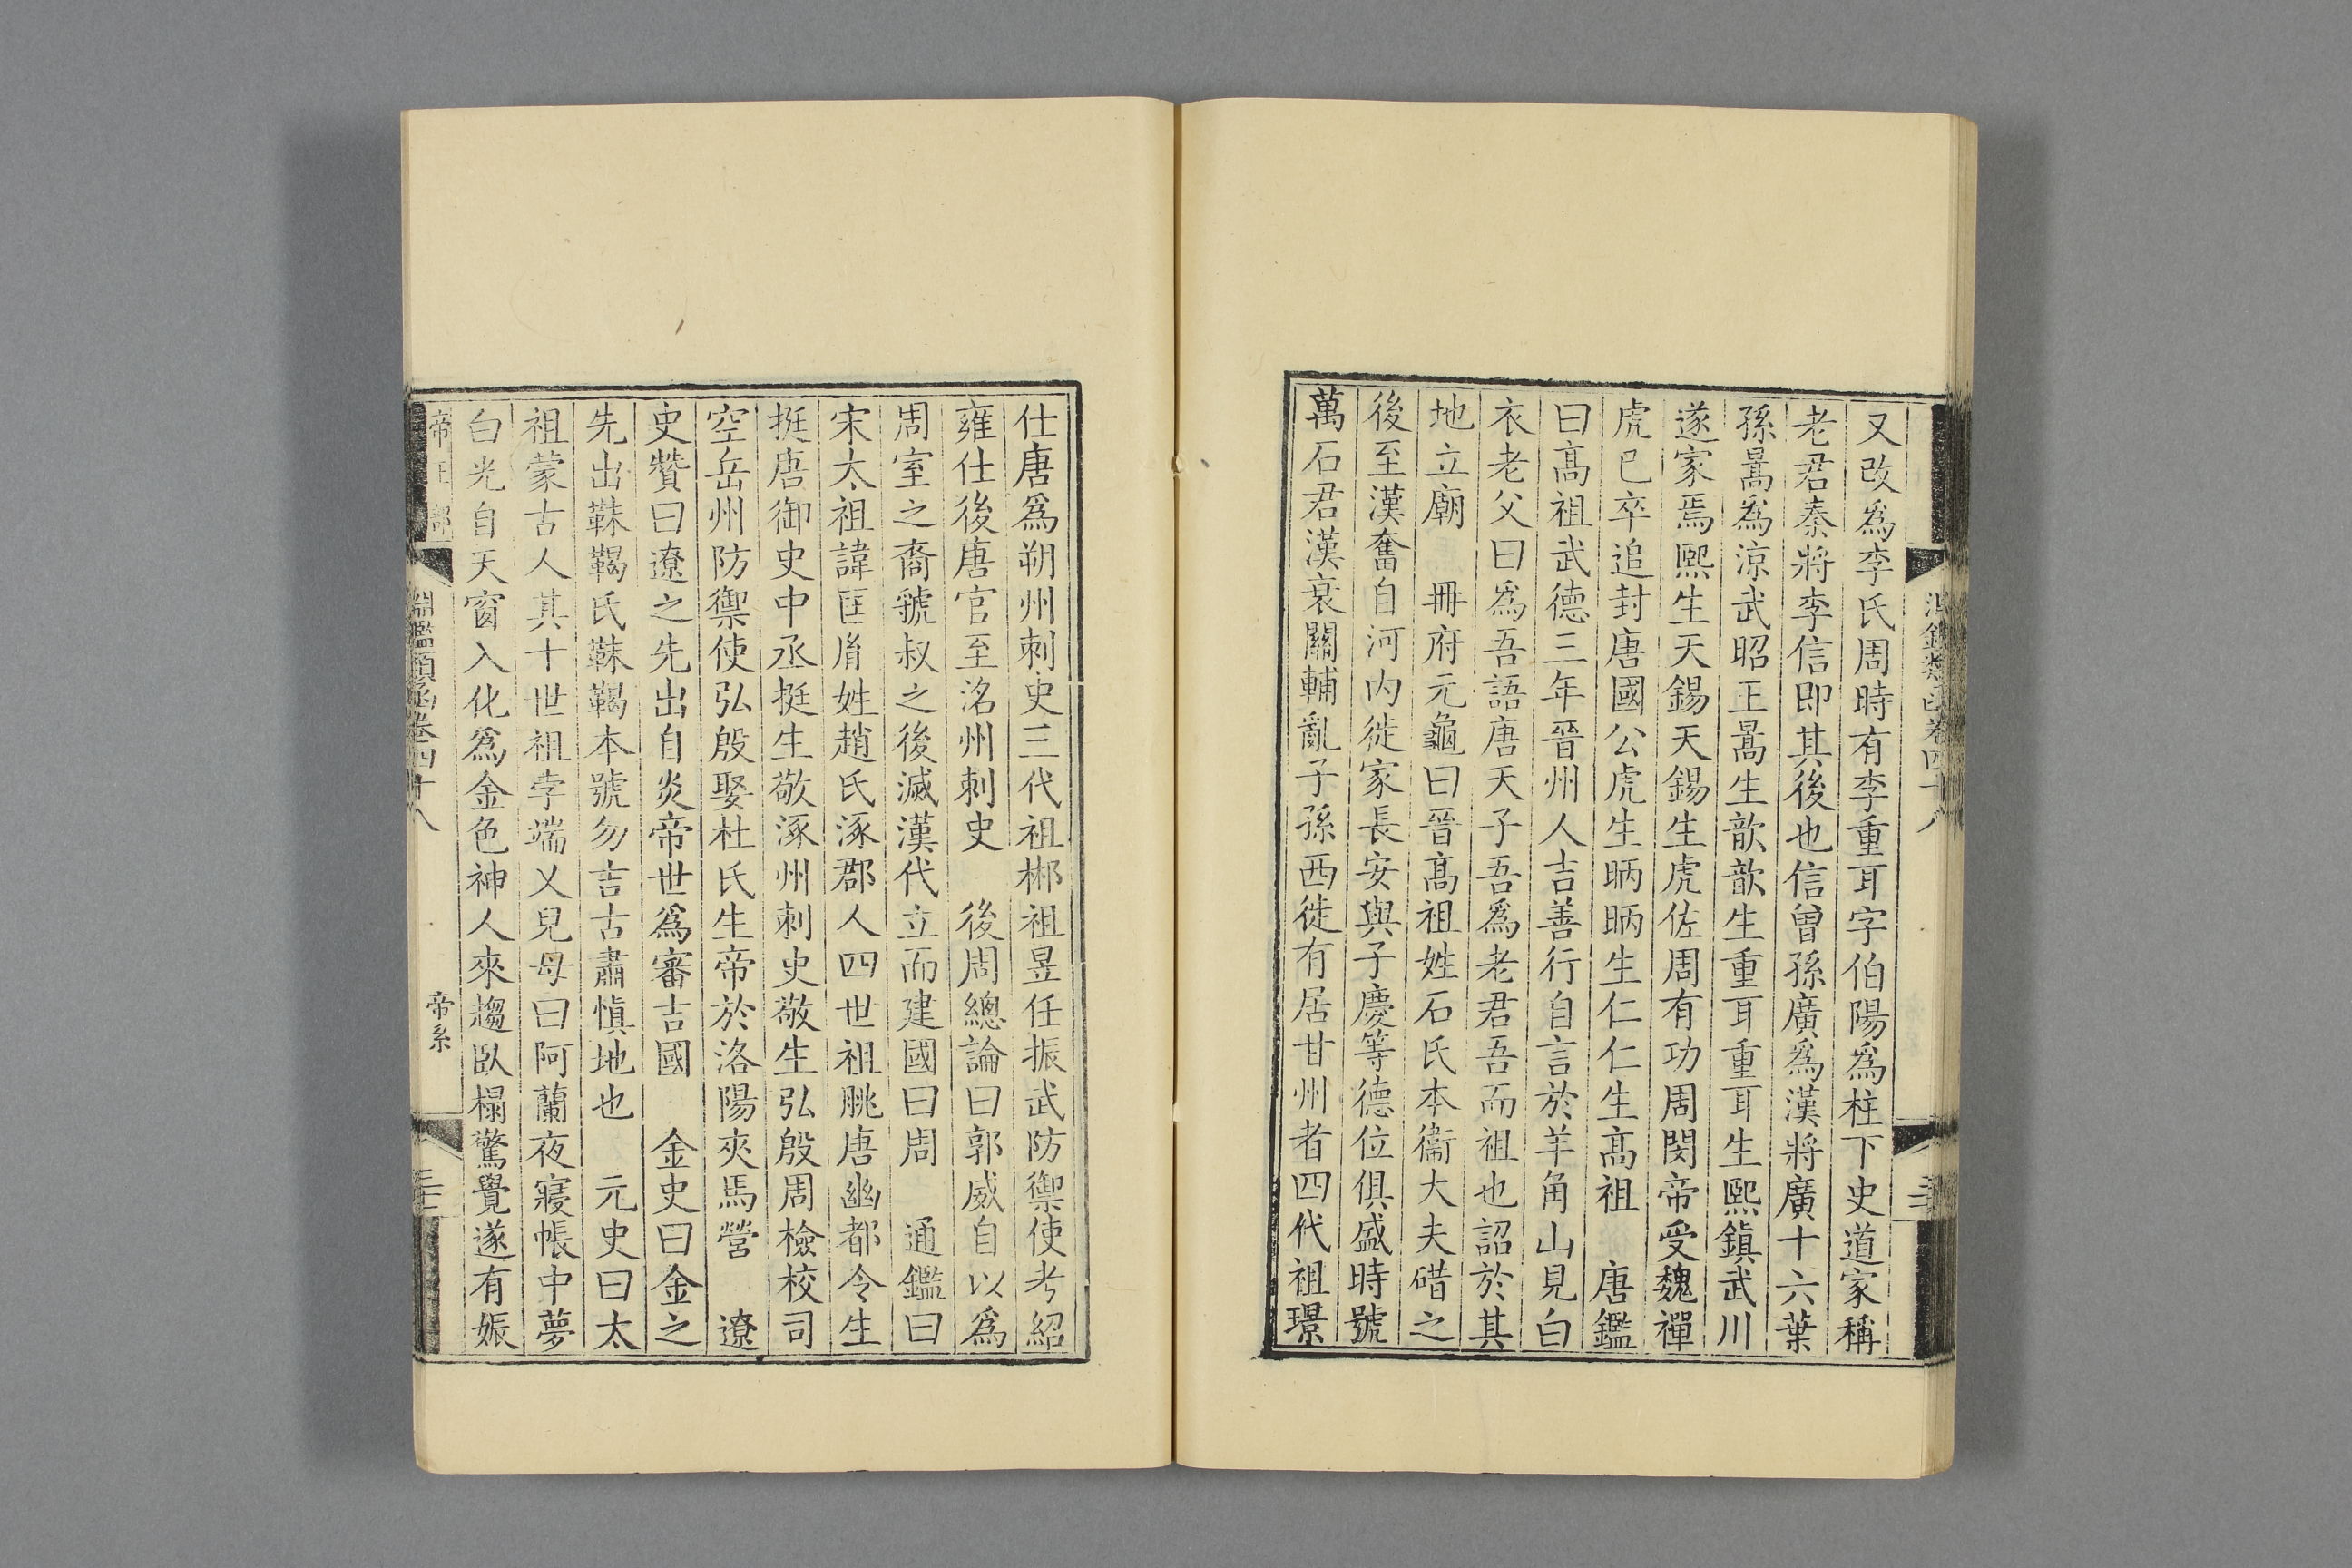 又改爲李氏周時有李重耳字伯陽爲柱下史道家稱
老君秦將李信即其後也信曾孫廣爲漢將廣十六葉
孫暠爲涼武昭王暠生歆歆生重耳重耳生熙鎭武川
遂家焉熙生天錫天錫生虎佐周有功周閔帝受魏禪
虎已卒追封唐國公虎生昞昞生仁仁生高祖　唐鑑
曰高祖武德三年晉州人吉善行自言於羊角山見白
衣老父曰爲吾語唐天子吾爲老君吾而祖也詔於其
地立廟　冊府元龜曰晉高祖姓石氏本衞大夫碏之
後至漢奮自河内徙家長安與子慶等德位俱盛時號
萬石君漢衰關輔亂子孫西徙有居甘州者四代祖璟
仕唐爲朔州刺史三代祖郴祖昱任振武防禦使考紹
雍仕後唐官至洺州刺史　後周總論曰郭威自以爲
周室之裔虢叔之後滅漢代立而建國曰周　通鑑曰
宋太祖諱匡胤姓趙氏涿郡人四世祖朓唐幽都令生
挺唐御史中丞挺生敬涿州刺史敬生弘殷周檢校司
空岳州防禦使弘殷娶杜氏生帝於洛陽夾馬營　遼
史贊曰遼之先出自炎帝世爲審吉國　金史曰金之
先出靺鞨氏靺鞨本號勿吉古肅愼地也　元史曰太
祖蒙古人其十世祖孛端义兒母曰阿蘭夜寢帳中夢
白光自天窗入化爲金色神人來趨臥榻驚覺遂有娠
帝王部　淵鑑類函卷四十八　帝系